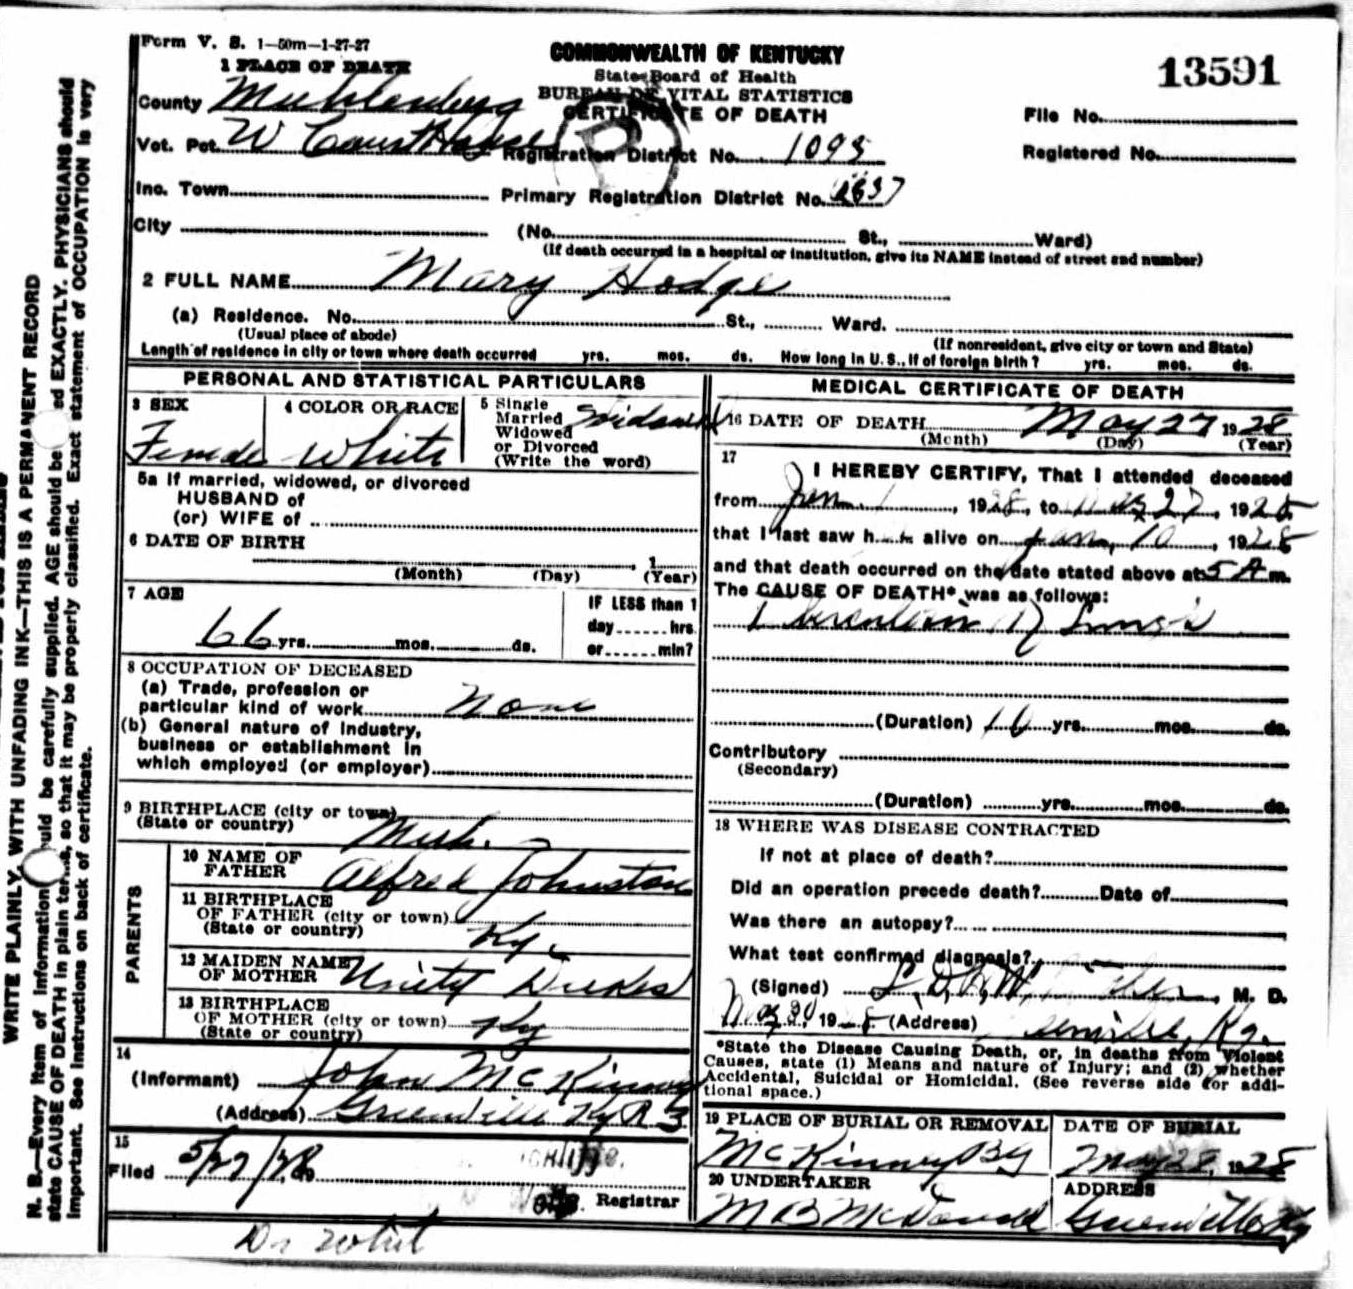 Form V. S. 1-50m-1-27-27
COMMONWEALTH OF KENTUCKY
State Board of Health
BUREAU OF VITAL STATISTICS
CERTIFICATE OF DEATH
13591
1 PLACE OF DEATH
County Muhlenberg
File No.
Vot. Pct. W Court House Registration District No. 1095
Registered No.
Inc. Town Primary Registration District No. 2637
City (No. St., Ward)
(If death occurred in a hospital or institution, give its NAME instead of street and number)
2 FULL NAME Mary Hodge
(a) Residence. No. St., Ward.
(Usual place of abode) (If nonresident, give city or town and State)
Length of residence in city or town where death occurred yrs. mos. ds. How long in U. S., if of foreign birth? yrs. mos. ds.
PERSONAL AND STATISTICAL PARTICULARS
3 SEX 4 COLOR OR RACE 5 Single
Married
Widowed
or Divorced
(Write the word)
Female White Widowed
5a If married, widowed, or divorced
HUSBAND of
(or) WIFE of
6 DATE OF BIRTH
1
(Month) (Day) (Year)
7 AGE IF LESS than 1
day hrs.
66 yrs. mos. ds. or min?
8 OCCUPATION OF DECEASED
(a) Trade, profession or
particular kind of work None
(b) General nature of industry,
business or establishment in
which employed (or employer)
9 BIRTHPLACE (city or town)
(State or country) Muh.
PARENTS
10 NAME OF
FATHER Alfred Johnston
11 BIRTHPLACE
OF FATHER (city or town)
(State or country) Ky.
12 MAIDEN NAME
OF MOTHER Unity Dukes
13 BIRTHPLACE
OF MOTHER (city or town)
(State or country) Ky
14
(Informant) John McKinney
(Address) Greenville Ky R 3
15
Filed 5/27/28, 19
Registrar
Dr Whit
MEDICAL CERTIFICATE OF DEATH
16 DATE OF DEATH May 27 1928
(Month) (Day) (Year)
17
I HEREBY CERTIFY, That I attended deceased
from Jan. 1, 1928, to May 27, 1928,
that I last saw h alive on Jan, 10, 1928
and that death occurred on the date stated above at 5 A m.
The CAUSE OF DEATH* was as follows:
Lungs
(Duration) 10 yrs. mos. ds.
Contributory
(Secondary)
(Duration) yrs. mos. ds.
18 WHERE WAS DISEASE CONTRACTED
If not at place of death?
Did an operation precede death? Date of
Was there an autopsy?
What test confirmed diagnosis?
(Signed) M. D.
May 30, 1928 (Address) Greenville, Ky.
*State the Disease Causing Death, or, in deaths from Violent
Causes, state (1) Means and nature of Injury; and (2) whether
Accidental, Suicidal or Homicidal. (See reverse side for addi-
tional space.)
19 PLACE OF BURIAL OR REMOVAL DATE OF BURIAL
McKinney BG May 28, 1928
20 UNDERTAKER ADDRESS
M B McDonald Greenville Ky
WRITE PLAINLY, WITH UNFADING INK—THIS IS A PERMANENT RECORD
N. B.—Every item of information should be carefully supplied. AGE should be stated EXACTLY. PHYSICIANS should
state CAUSE OF DEATH in plain terms, so that it may be properly classified. Exact statement of OCCUPATION is very
important. See instructions on back of certificate.